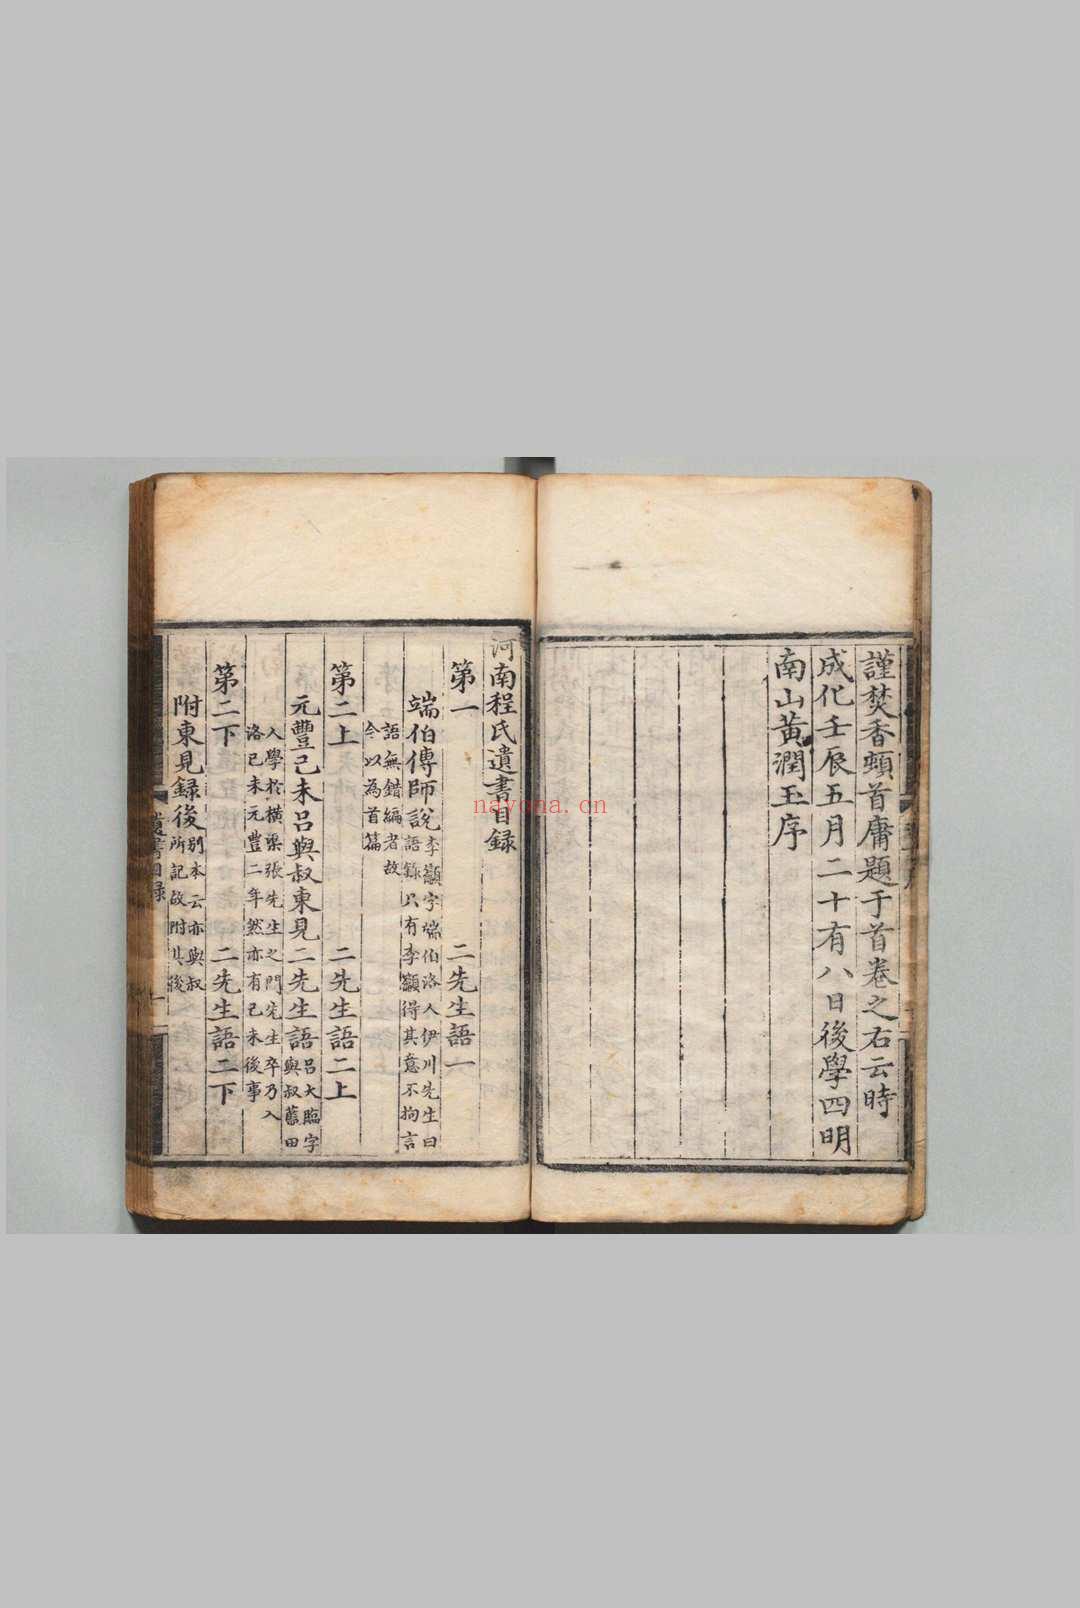 謹焚香頓首庸題于首卷之右云時
成化壬辰五月二十有八日後學四明
南山黃潤玉序
河南程氏遺書目録
第一 二先生語一
端伯傳師說
李籲字端伯洛人伊川先生曰
語錄只有李籲得其意不拘言
語無錯編者故
今以為首篇
第二上 二先生語二上
元豐己未呂與叔東見二先生語
呂大臨字
與叔藍田
人學於橫渠張先生之門先生卒乃入
洛己未元豐二年然亦有己未後事
第二下 二先生語二下
附東見録後
別本云亦與叔
所記故附其後
遺書目録
nayona.cn